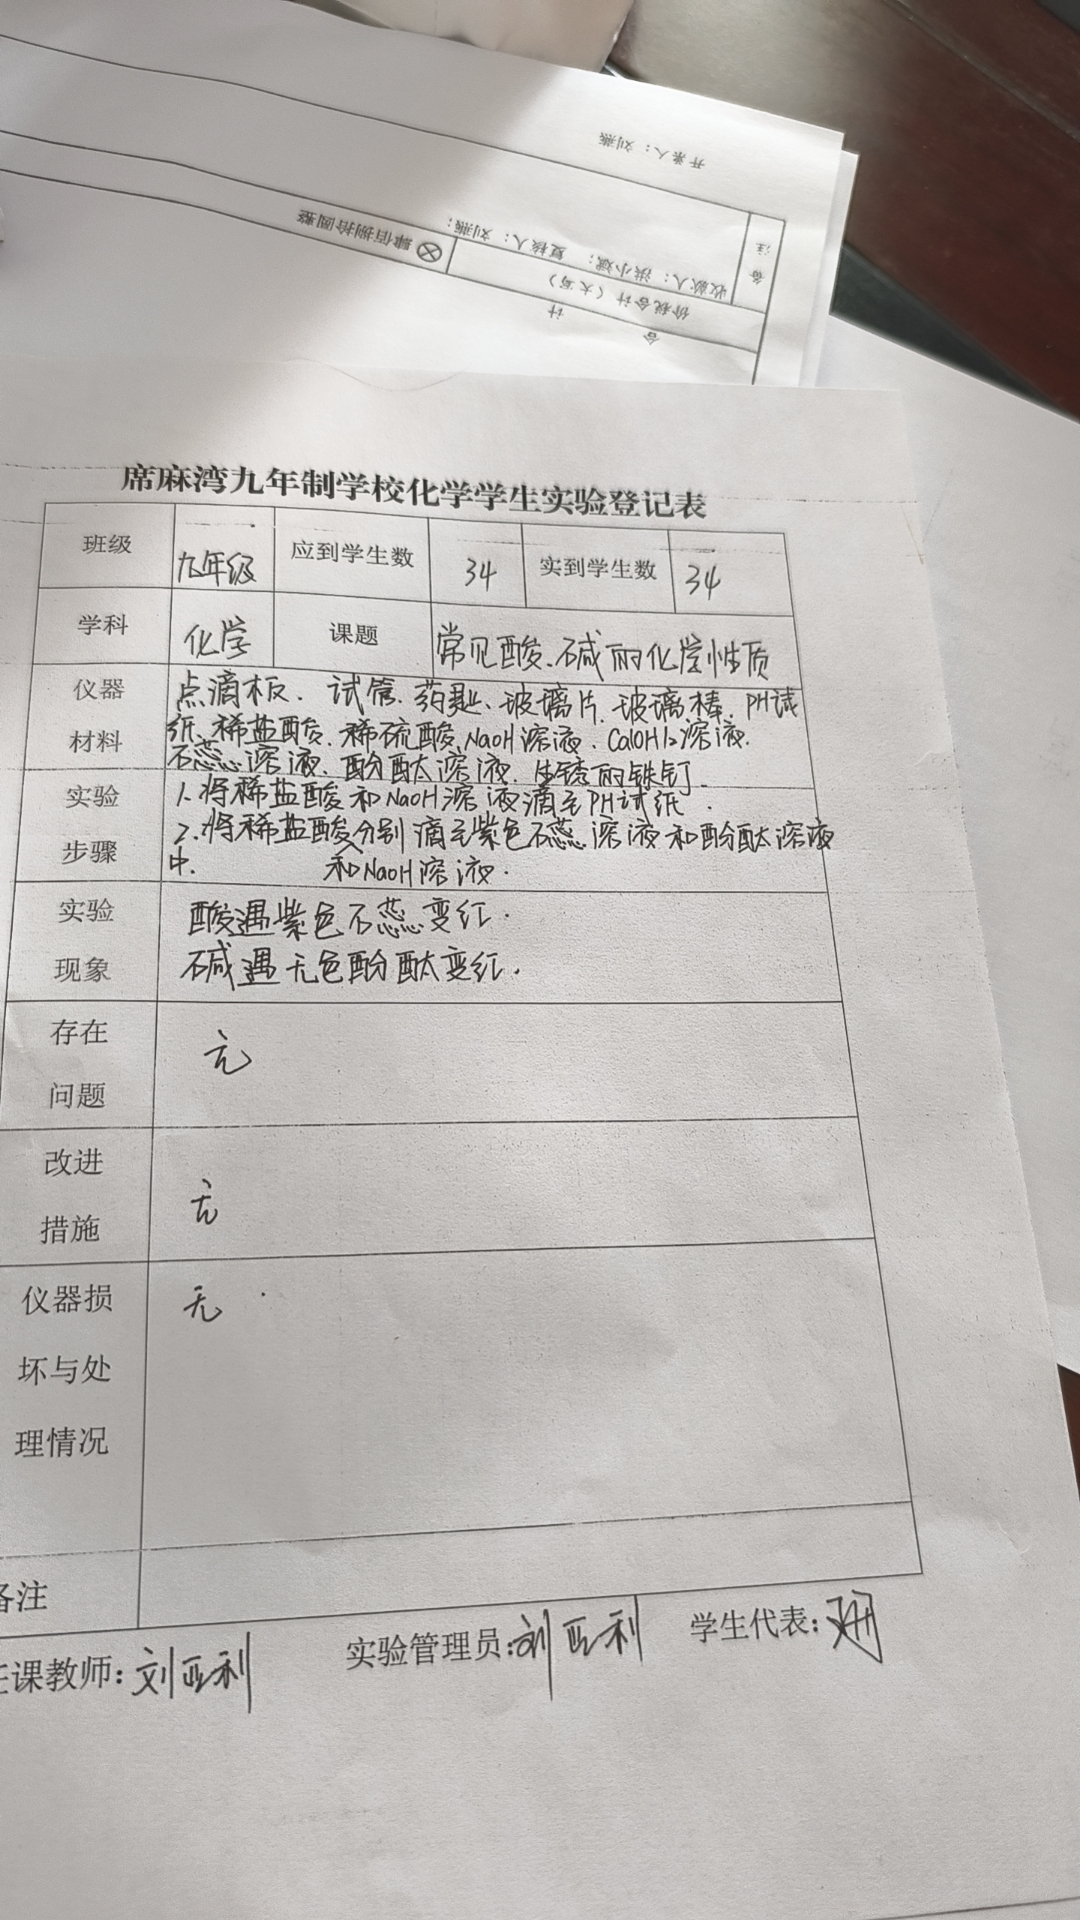 开票人：刘燕
备
注
收款人：洪小斌； 复核人：刘燕；
价税合计（大写）
⊗肆佰捌拾圆整
合 计
席麻湾九年制学校化学学生实验登记表
班级 九年级 应到学生数 34 实到学生数 34
学科 化学 课题 常见酸、碱的化学性质
仪器
材料
点滴板、试管、药匙、玻璃片、玻璃棒、PH试
纸、稀盐酸、稀硫酸、NaOH溶液、Ca(OH)2溶液、
石蕊溶液、酚酞溶液、生锈的铁钉
实验
步骤
1.将稀盐酸和NaOH溶液滴至PH试纸.
2.将稀盐酸分别滴至紫色石蕊溶液和酚酞溶液
中. 和NaOH溶液.
实验
现象
酸遇紫色石蕊变红.
碱遇无色酚酞变红.
存在
问题
无
改进
措施
无
仪器损
坏与处
理情况
无
备注
任课教师：刘亚利 实验管理员：刘亚利 学生代表：